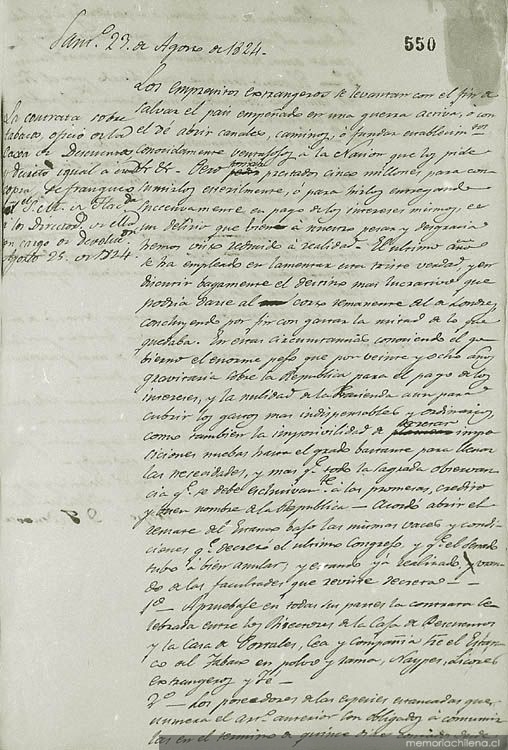 Sant.º 23. de Agosto de 1824.
550
Los Emprestitos extrangeros se levantan con el fin de
salvar el pais empeñado en una guerra activa, ó con
el de abrir canales, caminos, ó fundar establecim.tos
conocidamente ventajosos á la Nacion que los pide
Pero prestados cinco millones, para con
sumirlos esterilmente, ó para irlos entregando
succesivamente en pago de los intereses mismos, es
un delirio que á nuestro pesar y desgracia
hemos visto reducido á realidad. El ultimo año
se ha empleado en lamentar una triste verdad, y en
discurrir bagamente el destino mas lucrativo que
podria darse al corto remanente del de Londres,
concluyendo por fin con gastar la mitad de lo que
quedaba. En estas circunstancias, conociendo el go
bierno el enorme peso que por veinte y ocho años
gravitaria sobre la Republica para el pago de los
intereses, y la nulidad de la Hacienda aun para
cubrir los gastos mas indispensables y ordinarios,
como tambien la imposivilidad de decretar impo
siciones nuebas hasta el grado bastante para llenar
las necesidades, y mas q.e todo la sagrada observan
cia q.e se debe esclusivam.te á las promesas, credito
y buen nombre de la Republica — Acordó abrir el
remate del Estanco bajo las mismas vaces y condi
ciones q.e decretó el ultimo Congreso, y q.e el Senado
tubo á bien anular, y estando yá realizado, usan
do de las facultades que reviste decreta —
1.º — Apruebase en todas sus partes la contrata ce
lebrada entre los Directores de la Caja de Descuentos
y la Casa de Portales, Cea y Compañia sre el Estan
co del Tabaco en polvo y rama, Naypes, Licores
extrangeros y Té —
2.º — Los poseedores de las especies estancadas que
numera el art.º anterior son obligados á
las en el termino de quince dias
La contrata sobre
tabaco, oficio de la
Caxa de Descuentos
y decreto igual á
copia
á los Directores
cargo
Agosto 25. de 1824.
memoriachilena.cl